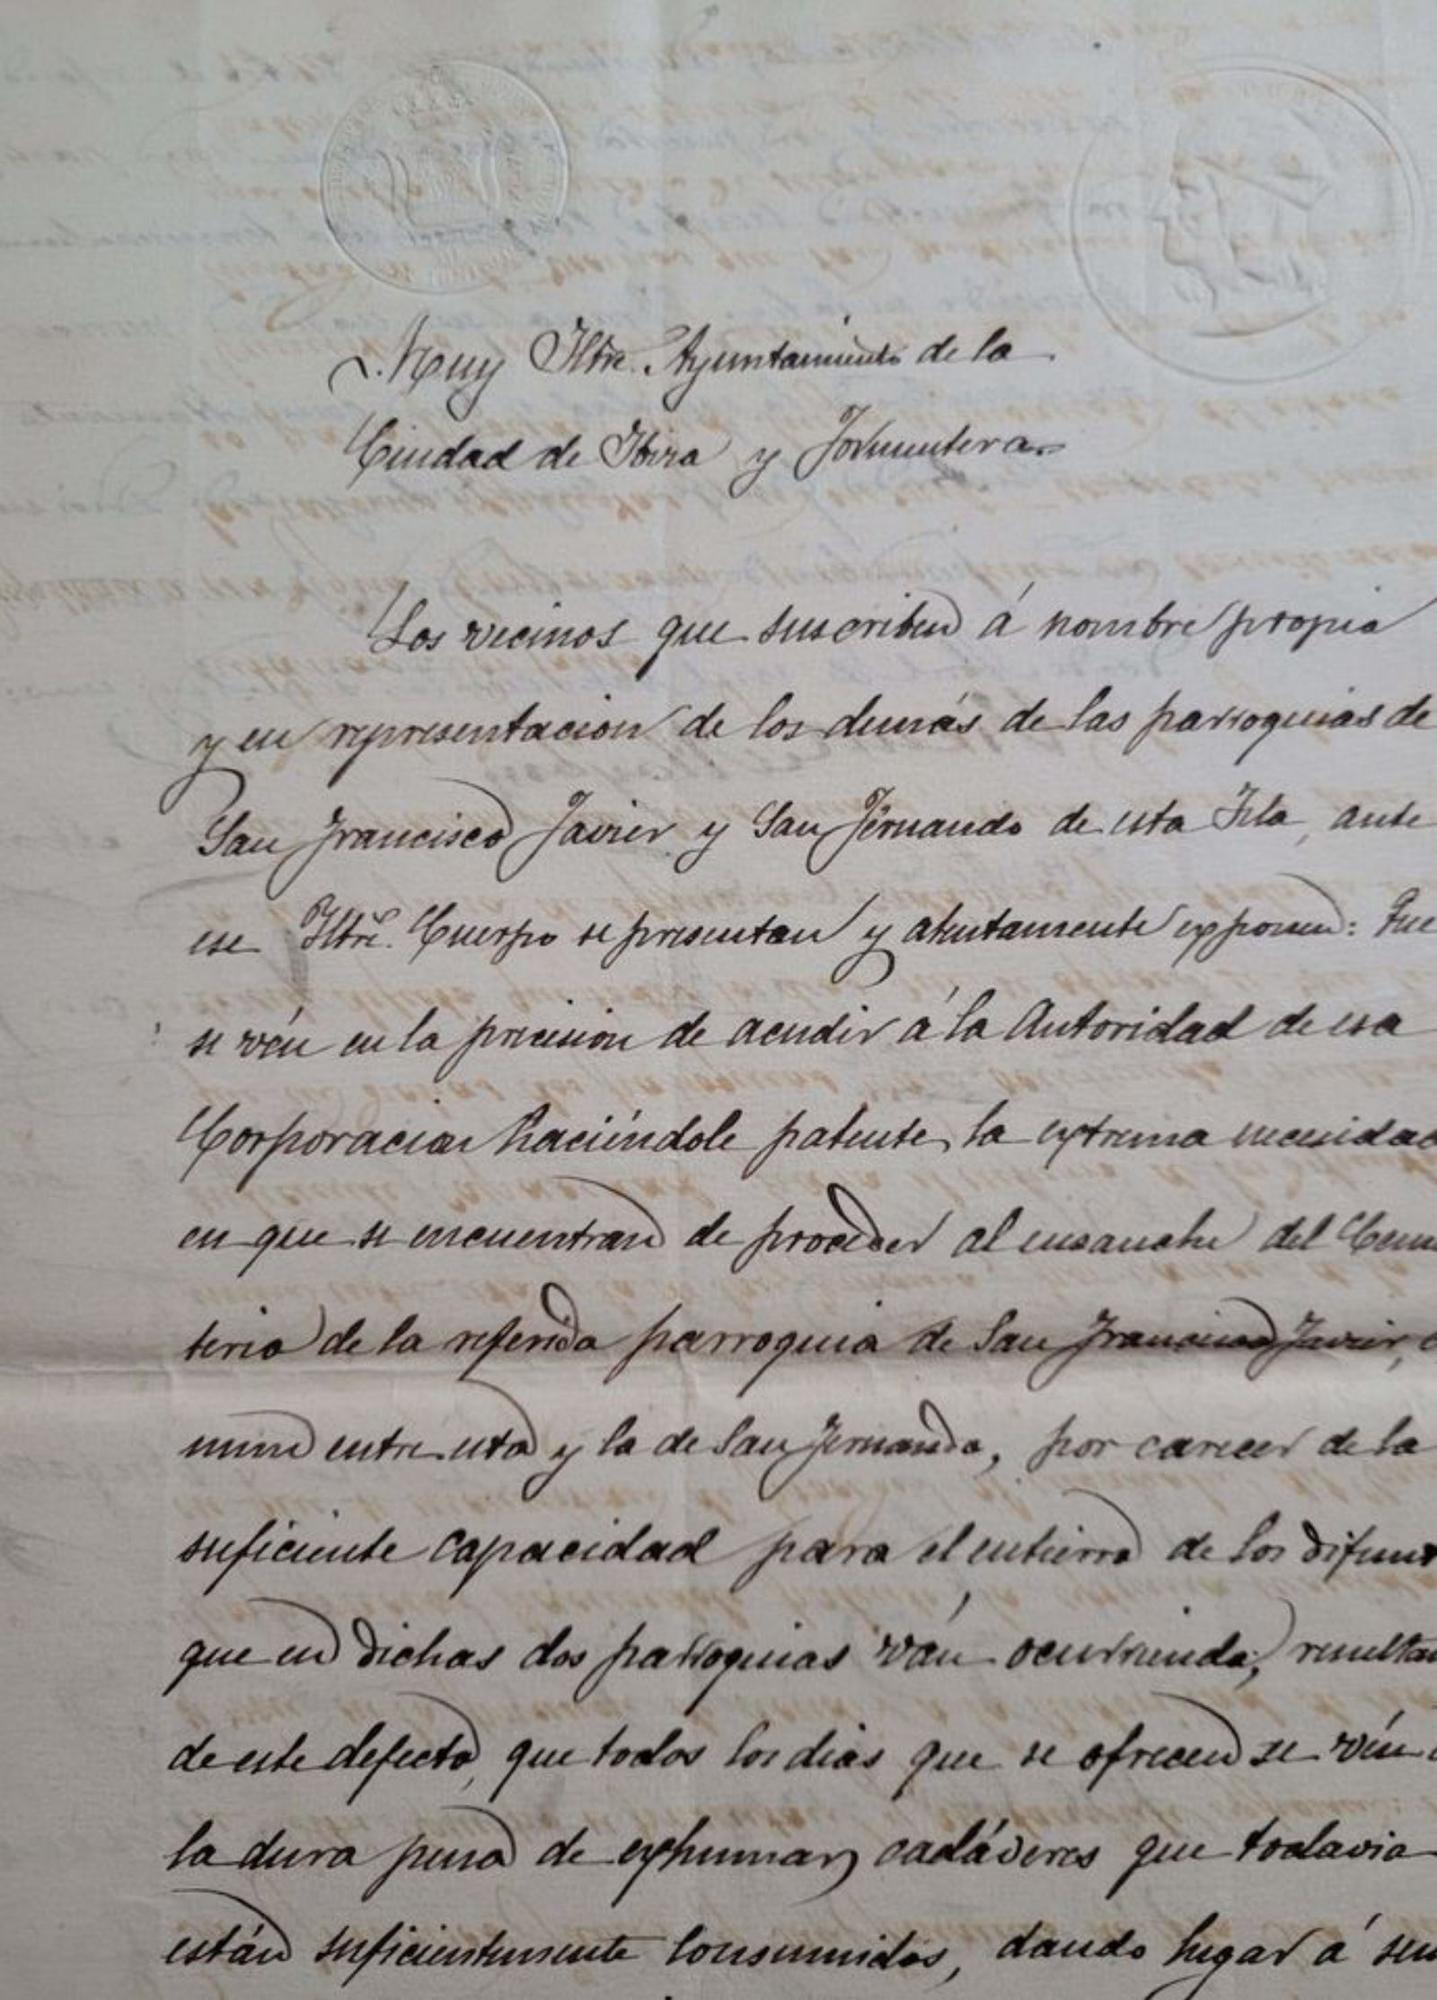 Muy Iltre. Ayuntamiento de la
Ciudad de Ibiza y Formentera.
Los vecinos que suscriben á nombre propio
y en representacion de los demás de las parroquias de
San Francisco Javier y San Fernando de esta Isla, ante
ese Iltre. Cuerpo se presentan y atentamente exponen: Que
se vén en la precision de acudir á la Autoridad de esa
Corporacion haciéndole patente, la extrema necesidad
en que se encuentran de proceder al ensanche del Ceme
terio de la referida parroquia de San Francisco Javier, c
mun entre esta y la de San Fernando, por carecer de la
suficiente capacidad para el entierro de los difunt
que en dichas dos parroquias ván ocurriendo; resultan
de este defecto, que todos los dias que se ofrecen se vén
la dura pena de exhumar cadáveres que todavia
están suficientemente consumidos, dando lugar á sen